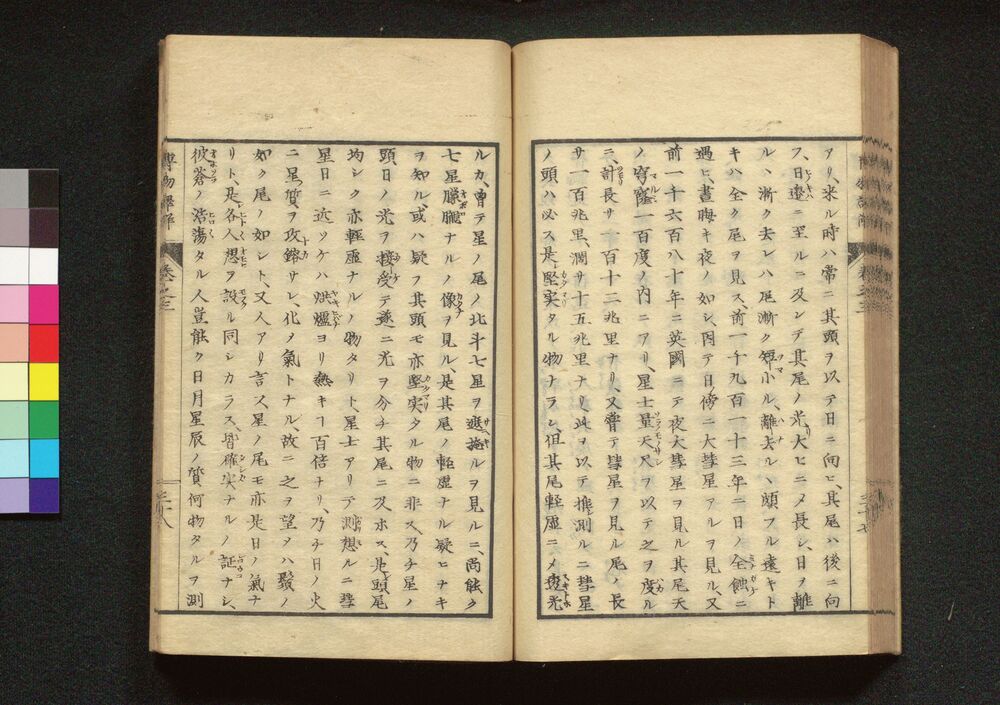 アリ、来ル時ハ常ニ其頭ヲ以テ日ニ向ヒ、其尾ハ後ニ向
フ、日邉ニ至ルニ及ンデ其尾ノ光大ヒニメ長シ、日ヲ離
ルヽ漸ク去レハ尾漸ク短小ル、離去ルヽ頗フル遠キト
キハ全ク尾ヲ見ス、前一千九百一十三年ニ日ノ全蝕ニ
遇ヒ、晝晦キ夜ノ如シ、因テ日傍ニ大彗星アルヲ見ル、又
前一千六百八十年ニ英國ニテ夜大彗星ヲ見ル其尾天
ノ穹窿一百度ノ内ニアリ、星士量天尺ヲ以テ之ヲ度ル
ニ、計長サ一百十二兆里ナリ、又曾テ彗星ヲ見ル尾ノ長
サ一百兆里、濶サ十五兆里ナリ、此ヲ以テ推測ルニ彗星
ノ頭ハ必ス是、堅実タル物ナラン、但其尾輕虚ニメ透光
ルカ、曾テ星ノ尾ノ北斗七星ヲ遮掩ルヲ見ルニ、尚能ク
七星朦朧ナルノ像ヲ見ル、是其尾ノ輕虚ナル疑ヒナキ
ヲ知ル、或ハ疑フ其頭モ亦堅実タル物ニ非ス、乃チ星ノ
頭、日ノ光ヲ接受テ遂ニ光ヲ分チ其尾ニ及ホス、是頭尾
均シク亦輕虚ナルノ物タリト、星士アリテ測想ルニ彗
星日ニ近ツケハ烘爐ヨリ熱キ一百倍ナリ、乃チ日ノ火
ニ星質ヲ攻鎔サレ、化メ氣トナル、故ニ之ヲ望メハ鬚ノ
如ク尾ノ如シト、又人アリ言ス星ノ尾モ亦是日ノ氣ナ
リト、是各人想ヲ設ル同シカラス、皆確実ナルノ証ナシ、
彼蒼ノ浩蕩タル人豈能ク日月星辰ノ質何物タルヲ測